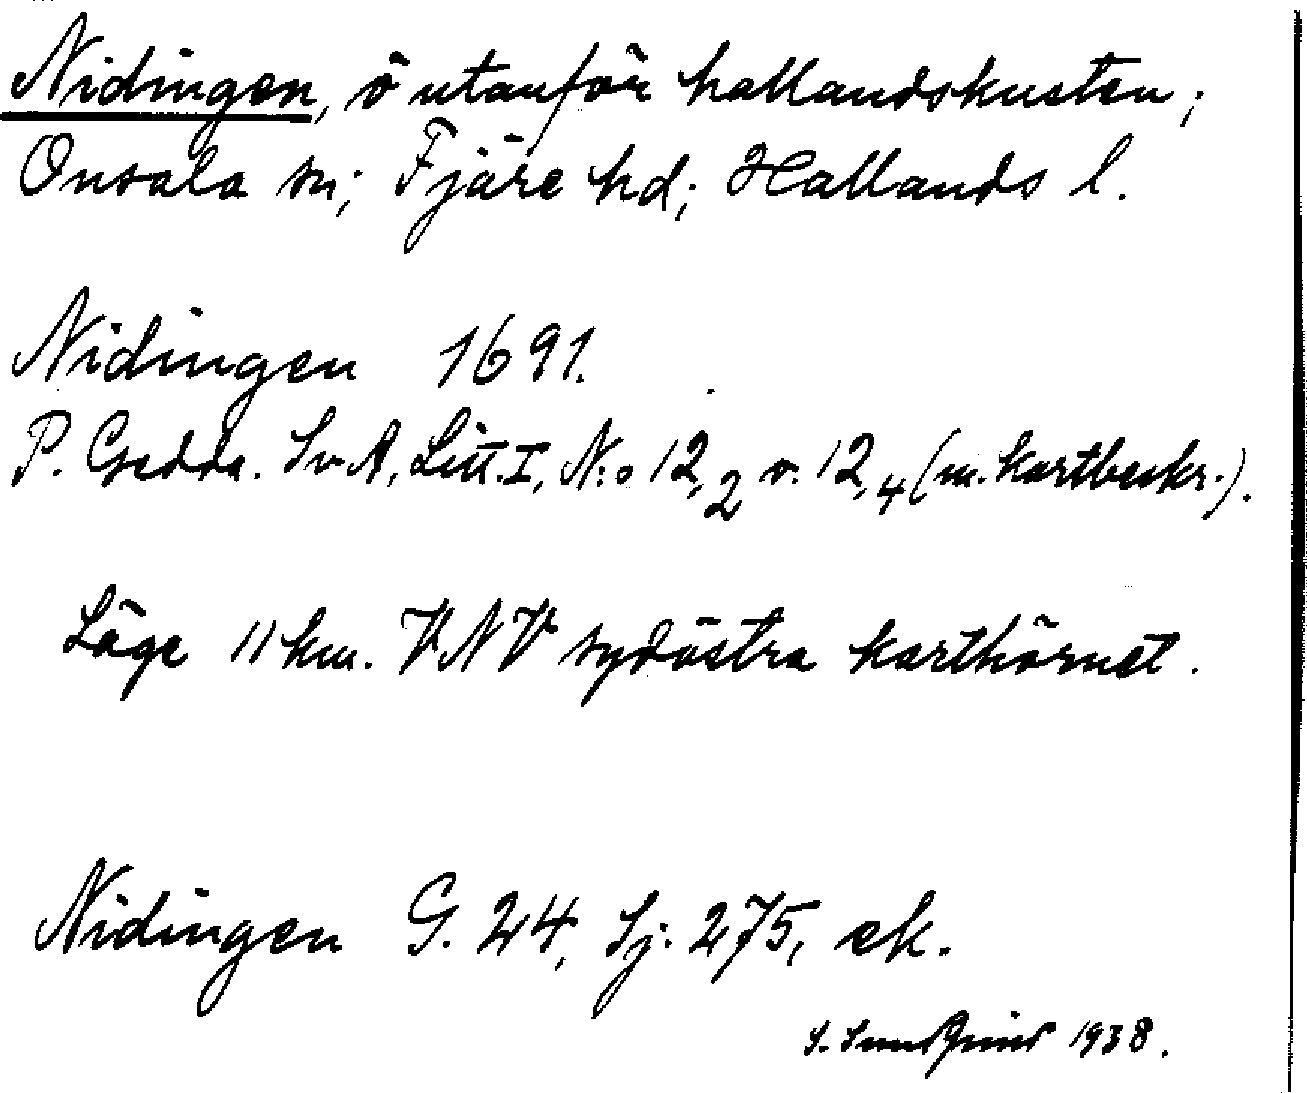 Nidingen, ö utanför hallandskusten;
Onsala sn; Fjäre hd; Hallands l.
Nidingen 1691.
P. Gedda. SvA, Litt. I, N:o 12,2 o. 12,4 (m. kartbeskr.).
Läge 11 km. VNV sydöstra karthörnet.
Nidingen G. 24, Sj. 275, ek.
S. 1938.